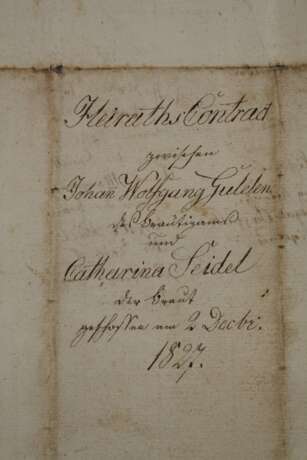 Heiraths Contract
zwischen
Johan Wolfgang Gulden
des Bräutigams
und
Catharina Seidel
der Braut
geschlossen am 2 Decbr.
1827.